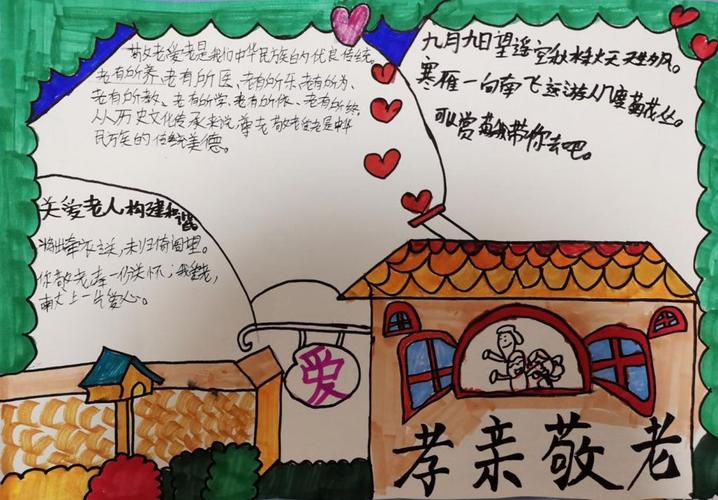 敬老爱老是我们中华民族的优良传统。
老有所养、老有所医、老有所乐、老有所为、
老有所教、老有所学、老有所依、老有所终,
从历史文化传承来说,尊老敬老爱老是中华
民族的传统美德。
九月九日望遥空秋天生夕风。
寒雁一向南飞远游人几度菊花丛。
可以赏菊我带你去吧。
关爱老人构建和谐
将出牵衣送,未归倚望。
你敬老奉一份关怀,我爱老,
献上一片爱心。
爱
孝亲敬老